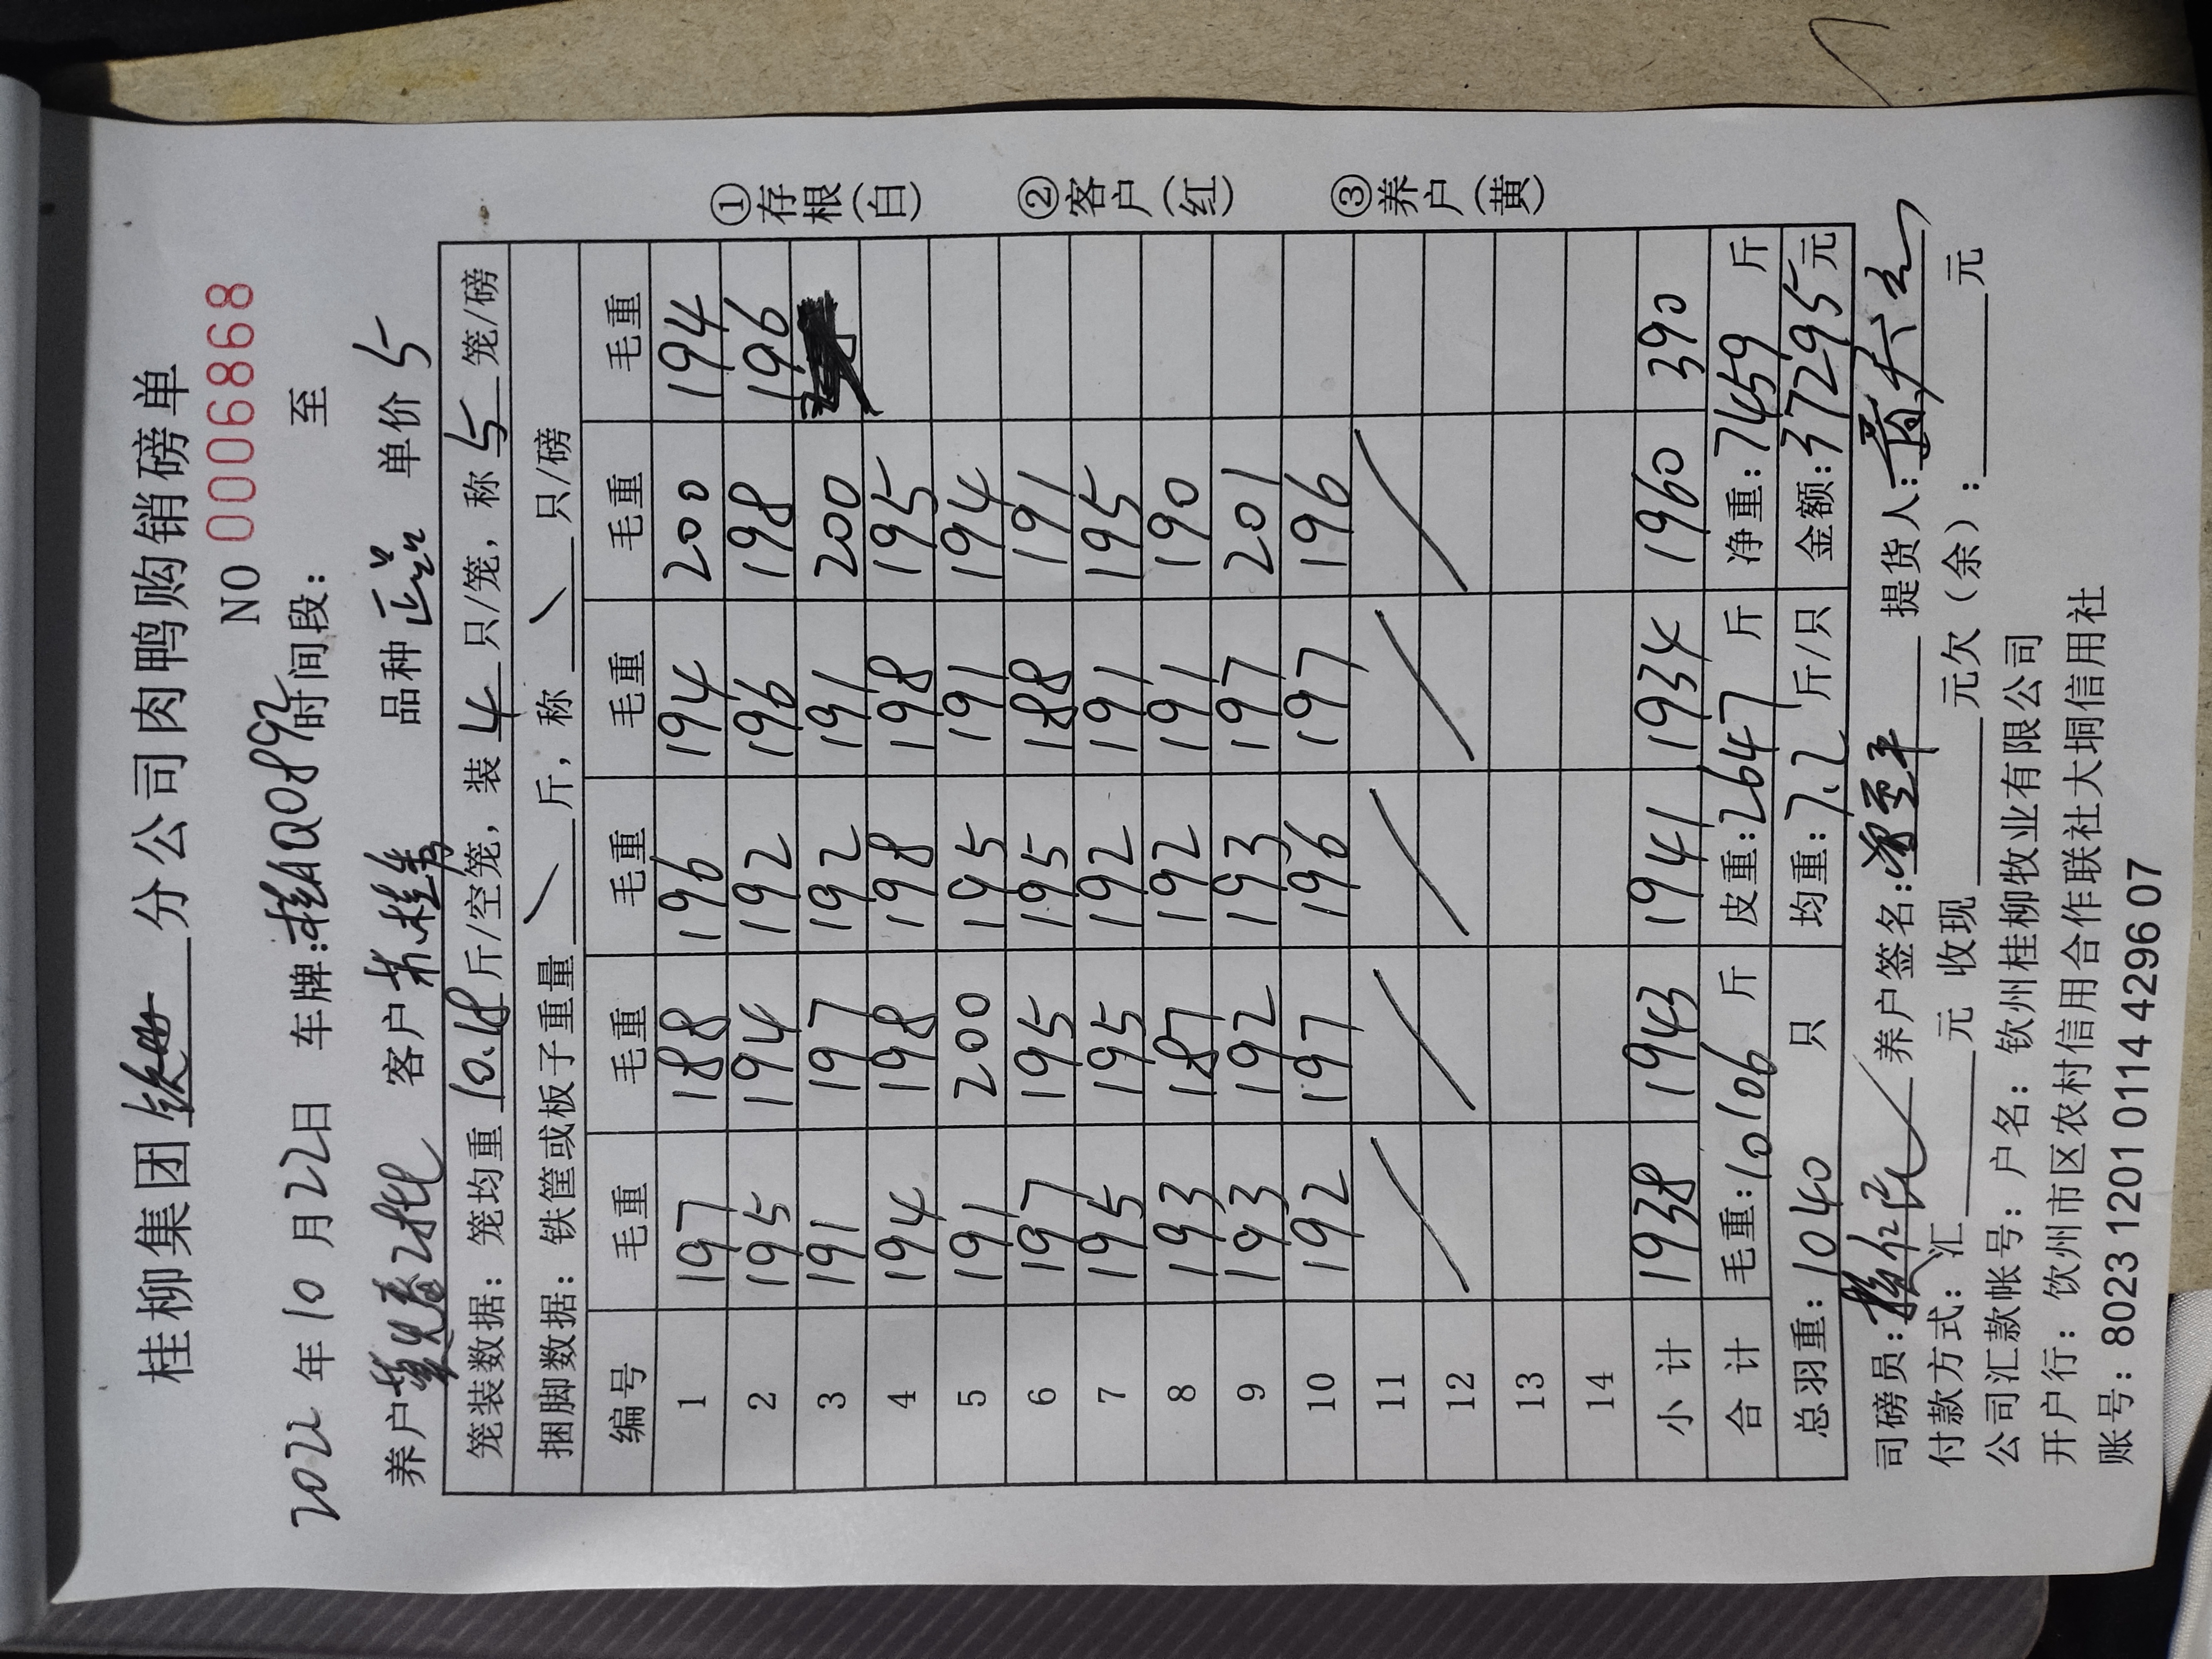 桂柳集团 钦州 分公司肉鸭购销磅单
NO 0006868
2022年10月22日 车牌:桂AQ0892 时间段: 至
养户 客户 苏桂秀 品种 正品 单价 5
笼装数据: 笼均重 10.18 斤/空笼, 装 4 只/笼, 称 5 笼/磅
捆脚数据: 铁筐或板子重量 \ 斤, 称 \ 只/磅
编号 毛重 毛重 毛重 毛重 毛重 毛重
1 197 188 196 194 200 194
2 195 194 192 196 198 196
3 191 197 192 191 200
4 194 198 198 198 195
5 191 200 195 191 194
6 197 195 195 188 191
7 195 195 192 191 195
8 193 187 192 191 190
9 193 192 193 197 201
10 192 197 196 197 196
11
12
13
14
小计 1938 1943 1941 1934 1960 390
合计 毛重:10106 斤 皮重:2647 斤 净重:7459 斤
总羽重:1040 只 均重:7.2 斤/只 金额:37295元
司磅员: 养户签名: 提货人:
付款方式: 汇 元 收现 元欠(余): 元
公司汇款帐号: 户名: 钦州桂柳牧业有限公司
开户行: 钦州市区农村信用合作联社大垌信用社
账号: 8023 1201 0114 4296 07
①存根(白)
②客户(红)
③养户(黄)